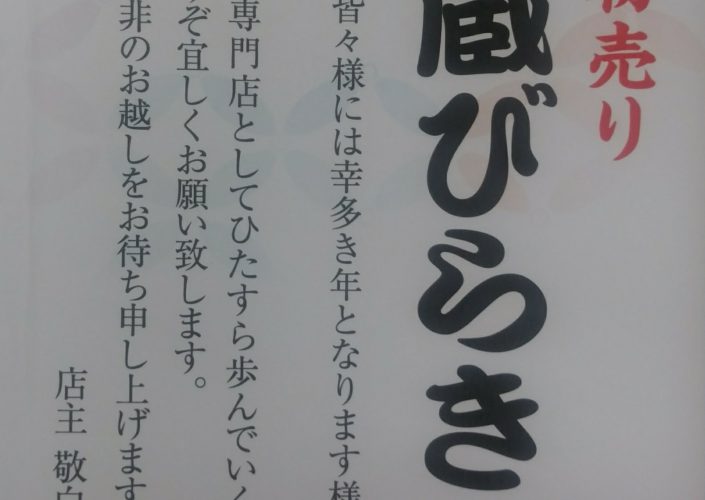 初売り
蔵びらき
皆々様には幸多き年となります様
専門店としてひたすら歩んでいく
ぞ宜しくお願い致します。
非のお越しをお待ち申し上げます
店主 敬白